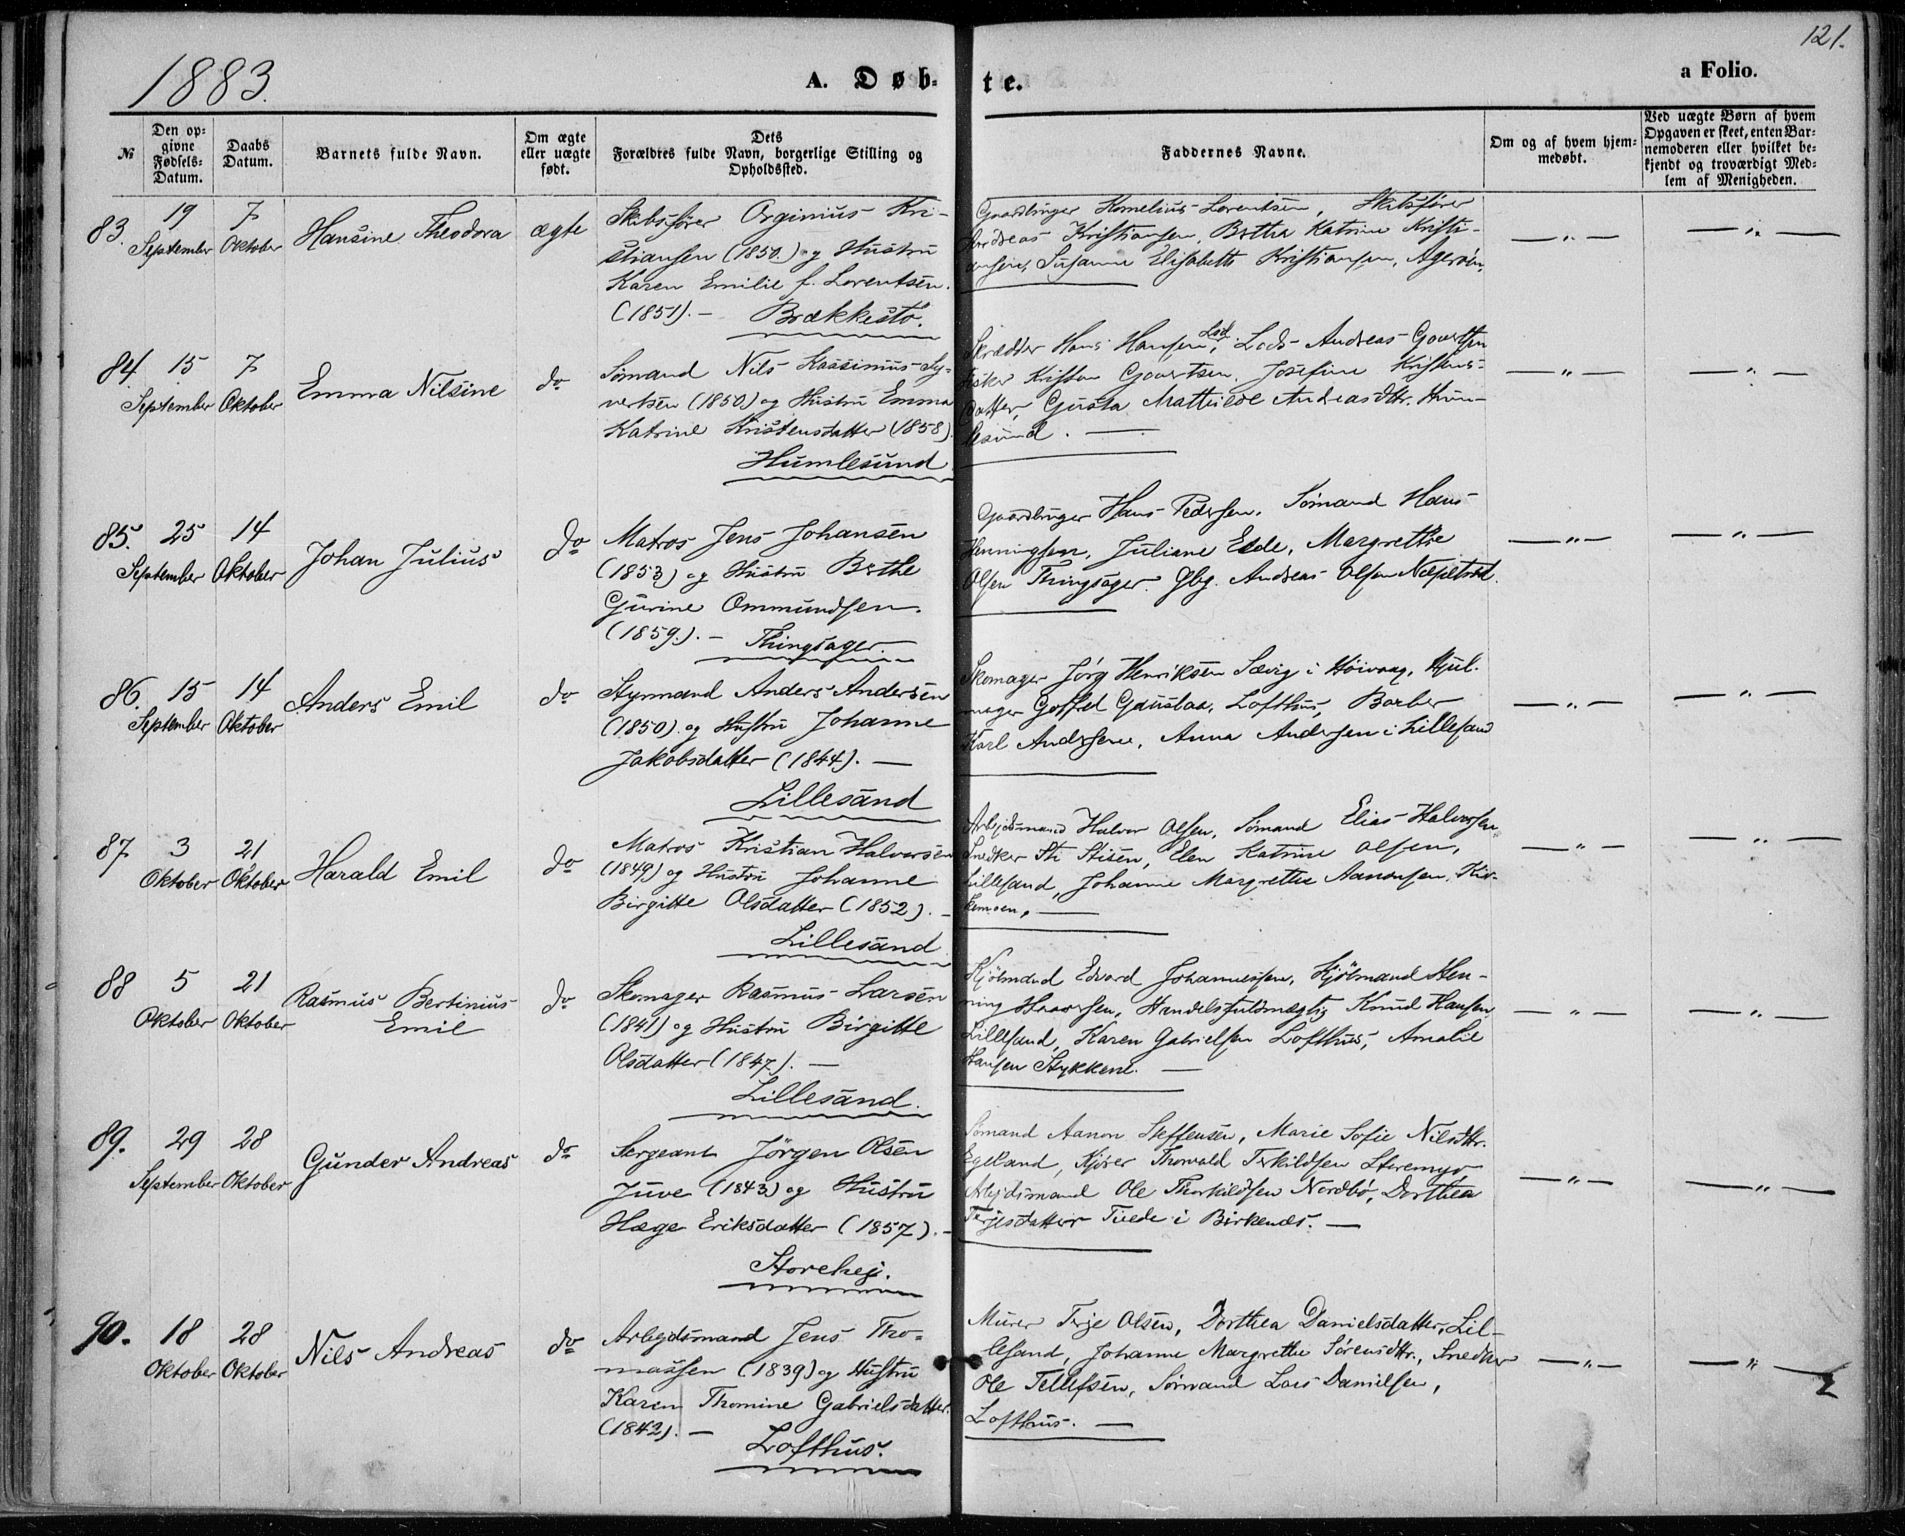 1883.
A. Døb-
te.
121.
a Folio.
№
Den op-
givne
Fødsels-
Datum.
Daabs
Datum.
Barnets fulde Navn.
Om ægte
eller uægte
født.
Dets
Forældres fulde Navn, borgerlige Stilling og
Opholdssted.
Faddernes Navne.
Om og af hvem hjem-
medøbt.
Ved uægte Børn af hvem
Opgaven er skeet, enten Bar-
nemoderen eller hvilket be-
kjendt og troværdigt Med-
lem af Menigheden.
83.
19
September
7
Oktober
Hansine Theodora
ægte
Skibsfører Orginius Kri-
stiansen (1850.) og Hustru
Karen Emilie f. Lorentsen.
(1851). — Brækkestø.
Gaardbruger Kornelius Lorentsen, Skibsfører
Andreas Kristiansen, Berthe Katrine Kristi-
ansen, Susanne Elisabeth Kristiansen, Agerøen,
— „ —
— „ —
84.
15
September
7
Oktober
Emma Nilsine
do
Sømand Nils Kassimius Sy-
vertsen (1850) og Hustru Emma
Katrine Kristensdatter (1858).
Humlesund
Skrædder Hans Hansen, Lods Andreas Govertsen
Fisker Kristen Govertsen, Josefine Kristens-
datter, Gusta Mathilde Andreasdttr. Hum-
lesund. —
— „ —
— „ —
85.
25
September
14
Oktober
Johan Julius
do
Matros Jens Johansen
(1853) og Hustru Berthe
Gurine Ommundsen.
(1859.). — Thingsager.
Gaardbruger Hans Pedersen, Sømand Hans
Henningsen, Juliane Eide, Margrethe
Olsen Thingsager. Gbg. Andreas Olsen Næpetved.
— „ —
— „ —
86.
15
September
14
Oktober
Anders Emil
do
Styrmand Anders Andersen
(1850). og Hustru Johanne
Jakobsdatter (1844). —
Lillesand
Skomager Jörg Henriksen Sævig i Høivaag, Hjul-
mager Goffred Gaustaa, Lofthus, Barber
Karl Andersen, Anna Andersen i Lillesand
— „ —
— „ —
87
3
Oktober
21
Oktober
Harald Emil
do
Matros Kristian Halvorsen
(1849) og Hustru Johanne
Birgitte Olsdatter (1852). —
Lillesand
Arbejdsmand Halvor Olsen, Sømand Elias Halvorsen
Snedker Sti Stisen, Elen Katrine Olsen,
Lillesand, Johanne Margrethe Aanonsen, Kir-
kemoen. —
— „ —
— „ —
88
5
Oktober
21
Oktober
Rasmus Bertinius
Emil
do
Skomager Rasmus Larsen
(1841) og Hustru Birgitte
Olsdatter (1847). —
Lillesand.
Kjøbmand Edvard Johannessen, Kjöbmand Hen-
ning Haavorsen, Handelsfuldmægtig Knud Hansen,
Lillesand, Karen Gabrielsen Lofthus, Amalie
Hansen Stykkene. —
— „ —
— „ —
89.
29
September
28
Oktober
Gunder Andreas
do
Sergeant Jörgen Olsen
Juve (1843) og Hustru
Hæge Eriksdatter (1857). —
Storehej.
Sømand Aanon Steffensen, Marie Sofie Nilsdttr.
Egeland, Kjører Thorvald Terkildsen Storemyr
Arbejdsmand Ole Thorkildsen Nordbø, Dorthea
Terjesdatter Tveide i Birkenæs. —
— „ —
— „ —
90.
18
Oktober
28
Oktober
Nils Andreas
do
Arbejdsmand Jens Tho-
massen (1839) og Hustru
Karen Thomine Gabrielsdatter.
(1842). — Lofthus.
Murer Terje Olsen, Dorthea Danielsdatter, Lil-
lesand, Johanne Margrethe Sørensdttr., Snedker
Ole Tellefsen, Sømand Lars Danielsen,
Lofthus. —
— „ —
— „ —